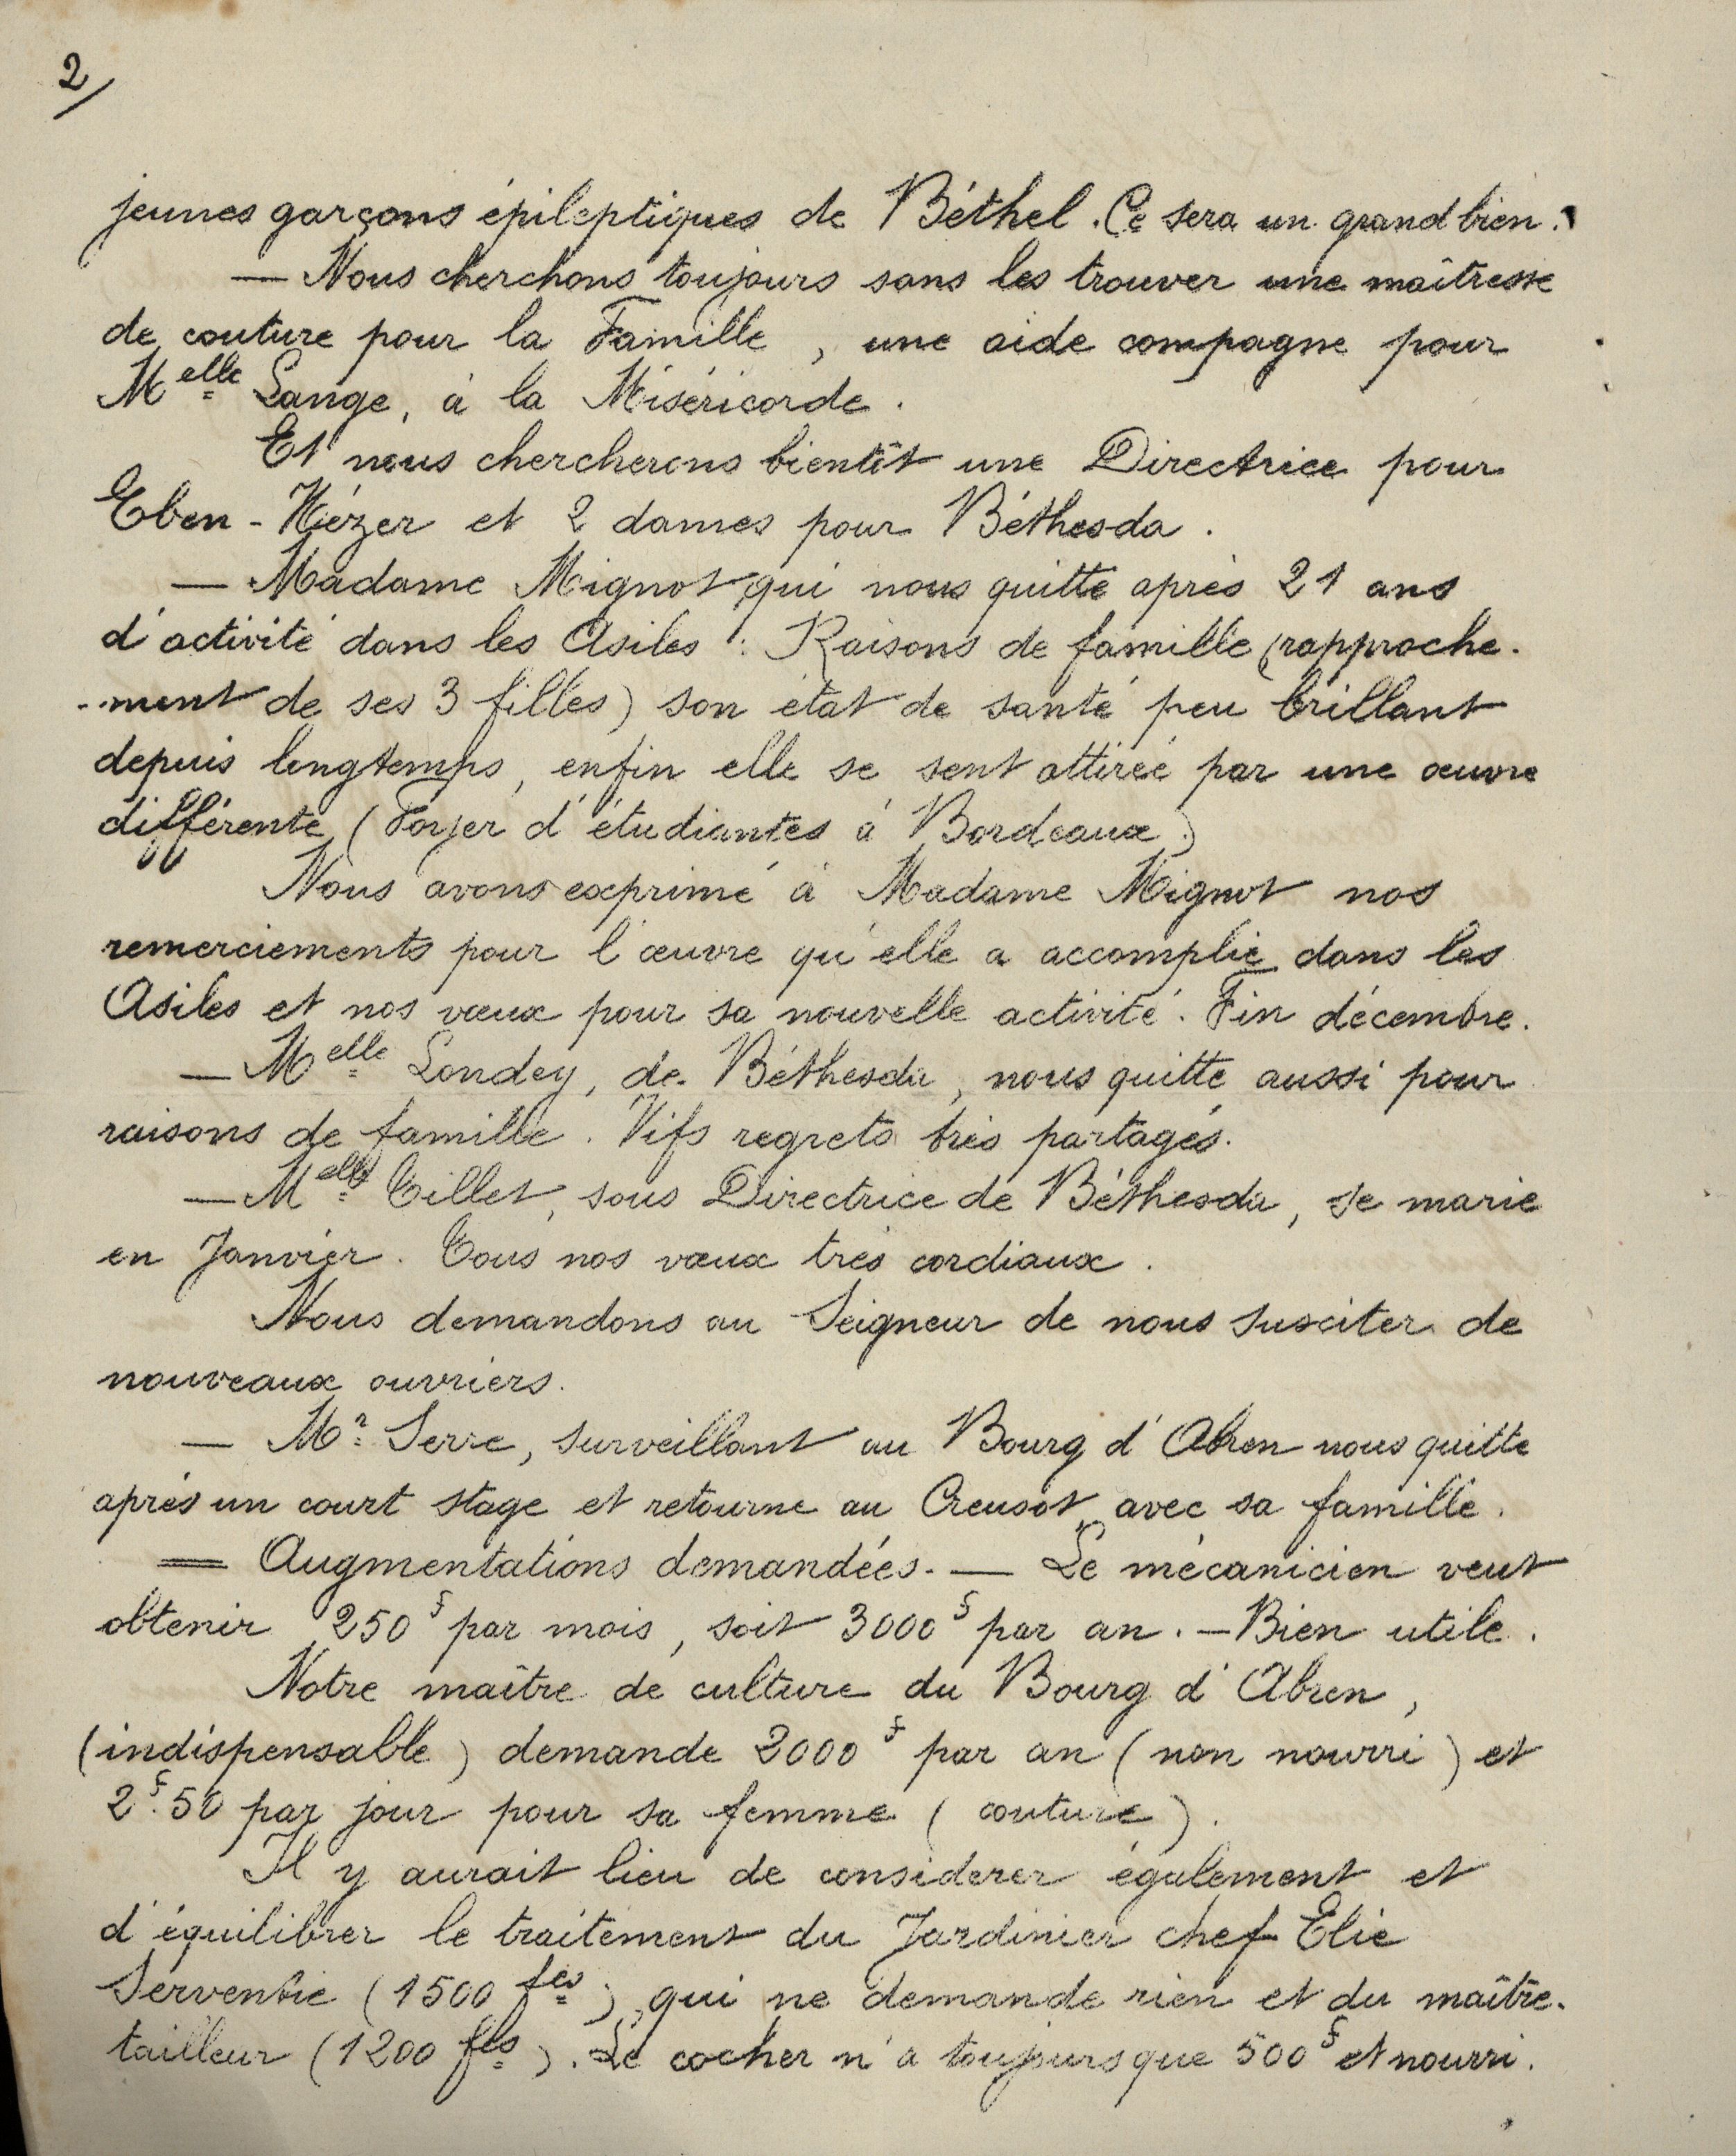 2/
jeunes garçons épileptiques de Béthel. Ce sera un grand bien.
— Nous cherchons toujours sans les trouver une maîtresse
de couture pour la Famille, une aide compagne pour
Melle Lange, à la Miséricorde.
Et nous chercherons bientôt une Directrice pour
Eben-Hézer et 2 dames pour Béthesda.
— Madame Mignot qui nous quitte après 21 ans
d'activité dans les Asiles : Raisons de famille (rapproche-
-ment de ses 3 filles) son état de santé peu brillant
depuis longtemps, enfin elle se sent attirée par une œuvre
différente (Foyer d'étudiantes à Bordeaux)
Nous avons exprimé à Madame Mignot nos
remerciements pour l'œuvre qu'elle a accomplie dans les
Asiles et nos vœux pour sa nouvelle activité. Fin décembre.
— Melle Londey, de Béthesda, nous quitte aussi pour
raisons de famille. Vifs regrets très partagés.
— Melle Tillet, sous Directrice de Béthesda, se marie
en Janvier. Tous nos vœux très cordiaux.
Nous demandons au Seigneur de nous susciter de
nouveaux ouvriers.
— Mr Serre, surveillant au Bourg d'Abren nous quitte
après un court stage et retourne au Creusot avec sa famille.
= Augmentations demandées. — Le mécanicien veut
obtenir 250f par mois, soit 3000f par an. — Bien utile.
Notre maître de culture du Bourg d'Abren,
(indispensable) demande 2000f par an (non nourri) et
2f.50 par jour pour sa femme (couture).
Il y aurait lieu de considerer également et
d'équilibrer le traitement du Jardinier chef Elie
Serventie (1500 fcs), qui ne demande rien et du maître-
tailleur (1200 fcs). Le cocher n'a toujours que 500f et nourri.